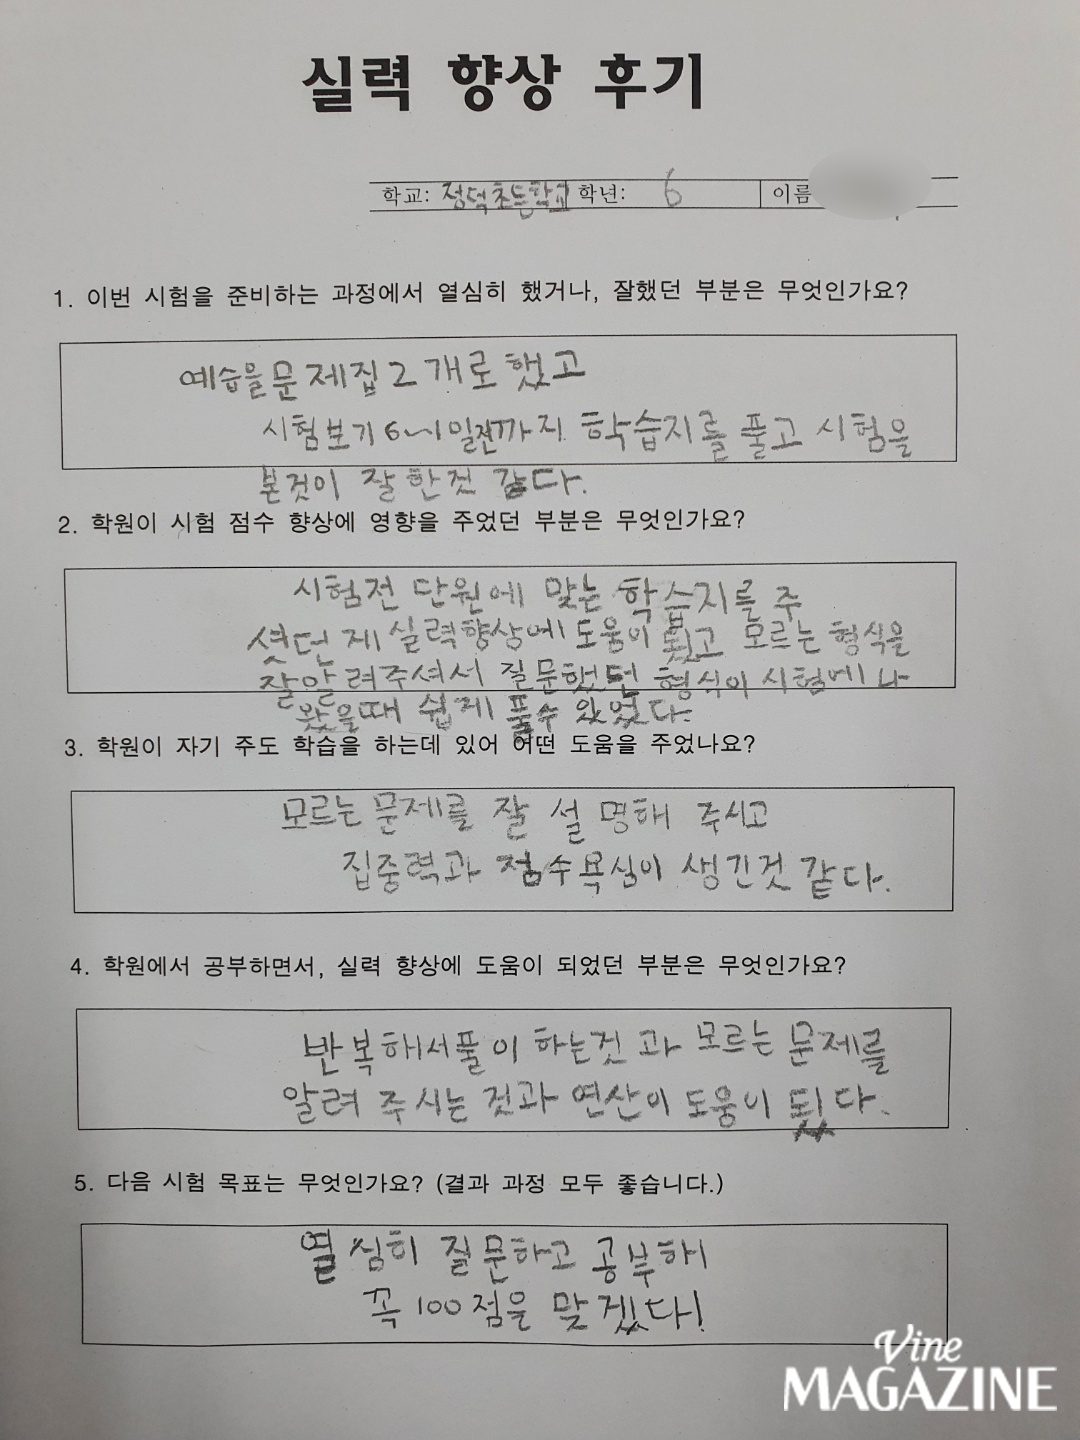 실력 향상 후기
학교: 정덕초등학교 학년: 6 이름
1. 이번 시험을 준비하는 과정에서 열심히 했거나, 잘했던 부분은 무엇인가요?
예습을 문제집 2개로 했고
시험보기 6~1일전까지 학습지를 풀고 시험을
본것이 잘한것 같다.
2. 학원이 시험 점수 향상에 영향을 주었던 부분은 무엇인가요?
시험전 단원에 맞는 학습지를 주
셧던 제 실력향상에 도움이 됬고 모르는 형식을
잘알려주셔서 질문했던 형식이 시험에 나
왔을때 쉽게 풀수 있었다.
3. 학원이 자기 주도 학습을 하는데 있어 어떤 도움을 주었나요?
모르는 문제를 잘 설명해 주시고
집중력과 점수욕심이 생긴것 같다.
4. 학원에서 공부하면서, 실력 향상에 도움이 되었던 부분은 무엇인가요?
반복해서풀이 하는것 과 모르는 문제를
알려 주시는 것과 연산이 도움이 됬다.
5. 다음 시험 목표는 무엇인가요? (결과 과정 모두 좋습니다.)
열심히 질문하고 공부해
꼭 100점을 맞겠다!
Vine
MAGAZINE